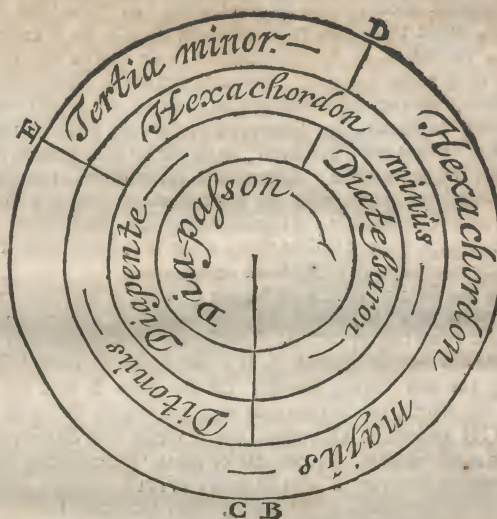 D
E
Tertia minor.
Hexachordon majus
Hexachordon minus
Ditonus
Diapente
Diateſsaron
Diapaſson
C B